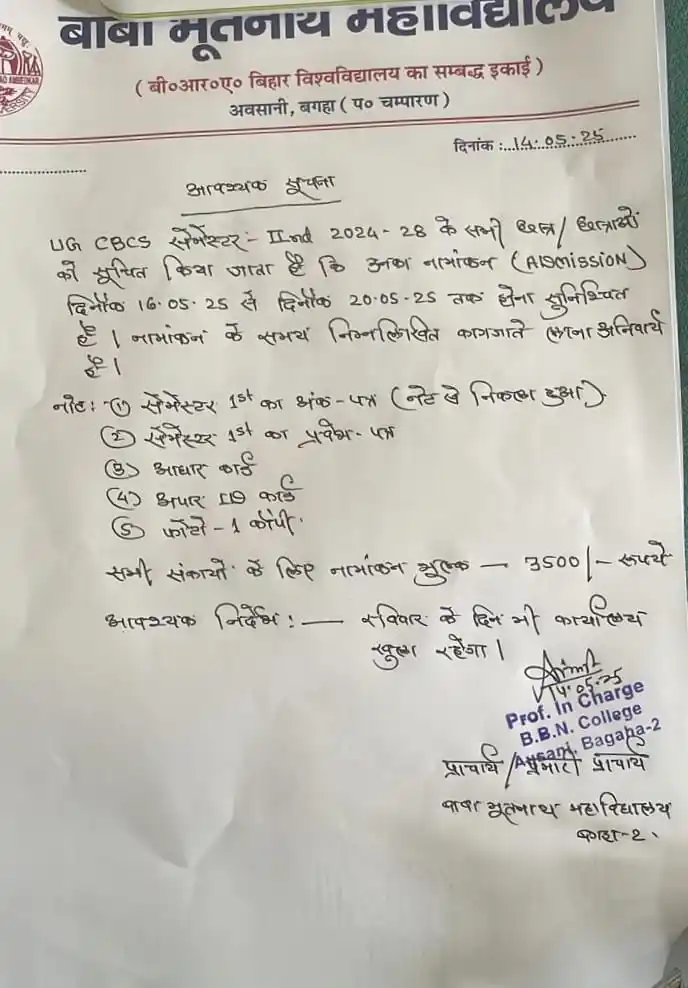 बाबा भूतनाथ महाविद्यालय
( बी०आर०ए० बिहार विश्वविद्यालय का सम्बद्ध इकाई )
अवसानी, बगहा ( प० चम्पारण )
दिनांक :..14.05.25
आवश्यक सूचना
UG CBCS सेमेस्टर:- IInd 2024-28 के सभी छात्र/ छात्राओं
को सूचित किया जाता है कि उनका नामांकन (ADMISSION)
दिनाँक 16.05.25 से दिनाँक 20.05.25 तक होना सुनिश्चित
है। नामांकन के समय निम्नलिखित कागजाते लाना अनिवार्य
है।
नोट: (1) सेमेस्टर 1st का अंक-पत्र (नेट से निकला हुआ)
(2) सेमेस्टर 1st का प्रवेश-पत्र
(3) आधार कार्ड
(4) अपार ID कार्ड
(5) फोटो - 1 कॉपी.
सभी संकायों के लिए नामांकन शुल्क — 3500/- रूपये
आवश्यक निर्देश: — रविवार के दिन भी कार्यालय
खुला रहेगा।
14.05.25
Prof. In Charge
B.B.N. College
Ausani, Bagaha-2
प्राचार्य/प्रभारी प्राचार्य
बाबा भूतनाथ महाविद्यालय
बगहा-2.